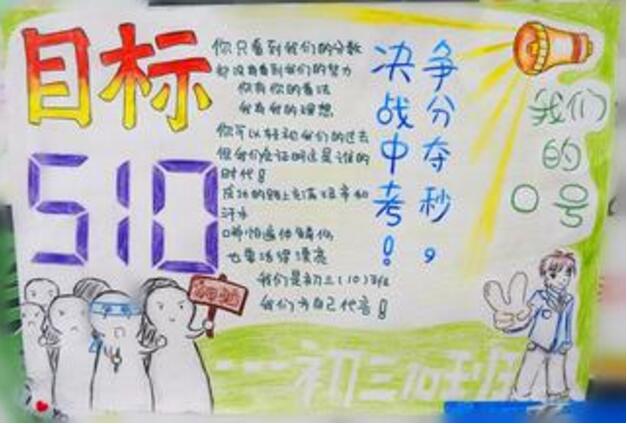 目标
510
你只看到我们的分数
却没有看到我们的努力
你有你的看法
我有我的理想
你可以轻视我们的过去
但我们会证明这是谁的
时代！
成功的路上充满艰辛和
汗水
哪怕遍体鳞伤
也要活得漂亮
我们是初三(10)班
我们为自己代言！
争分夺秒，
决战中考！
我们
的
口号
加油
---初三10班